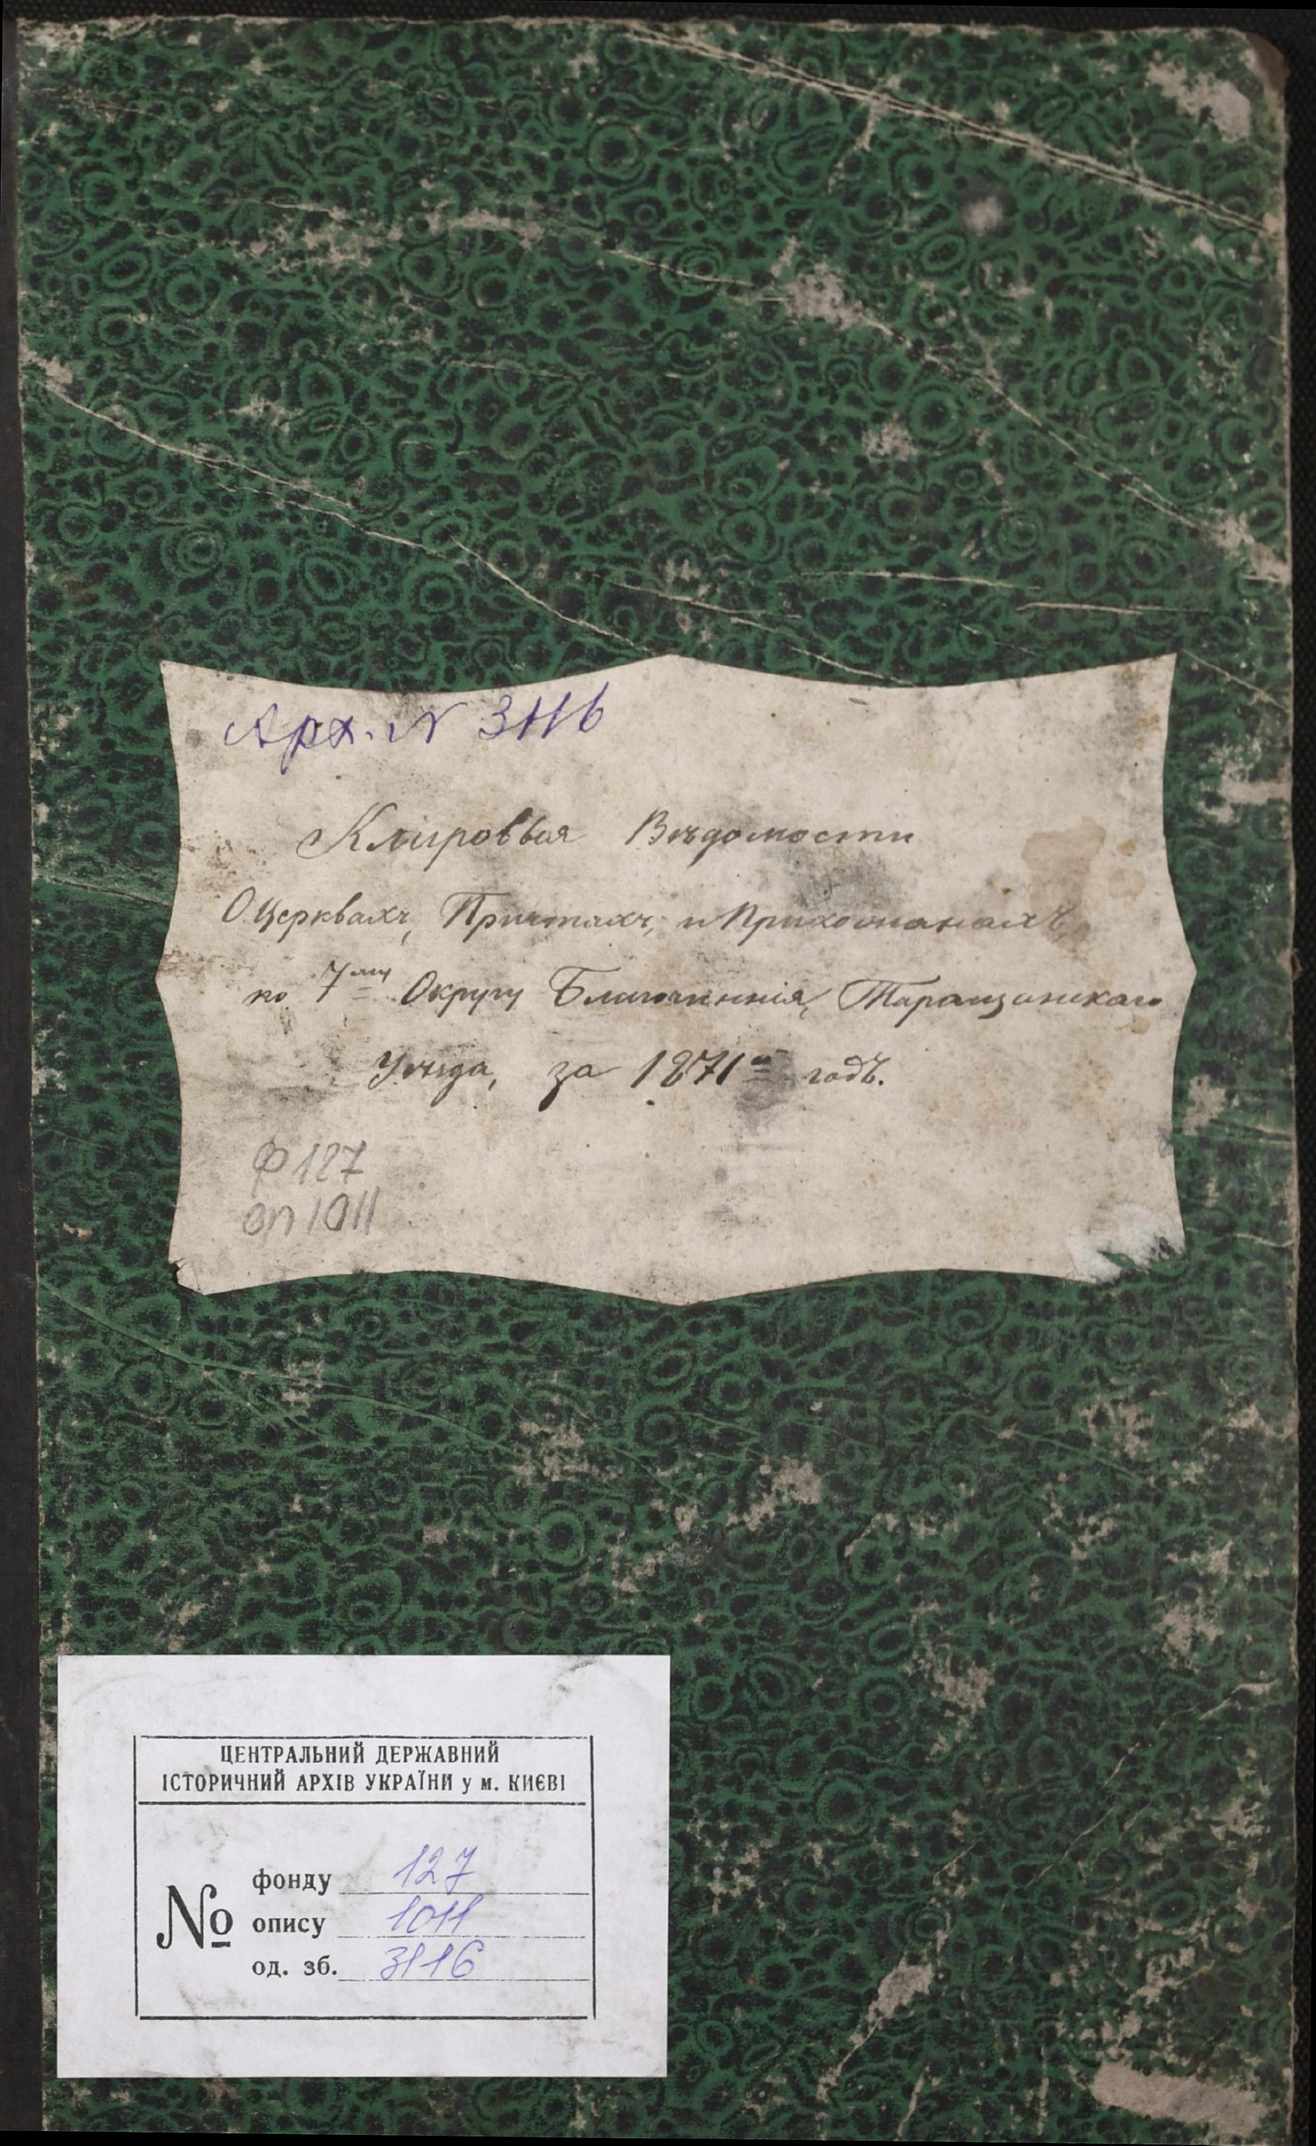 Арх. N 3116
Клировыя Вѣдомости
О Церквахъ, Причтахъ, и Прихожанахъ,
по 7му Округу Благочинія, Таращанскаго
Уѣзда, за 1871й годъ.
Ф 127
оп 1011
ЦЕНТРАЛЬНИЙ ДЕРЖАВНИЙ
ІСТОРИЧНИЙ АРХІВ УКРАЇНИ у м. КИЄВІ
№
фонду 127
опису 1011
од. зб. 3116